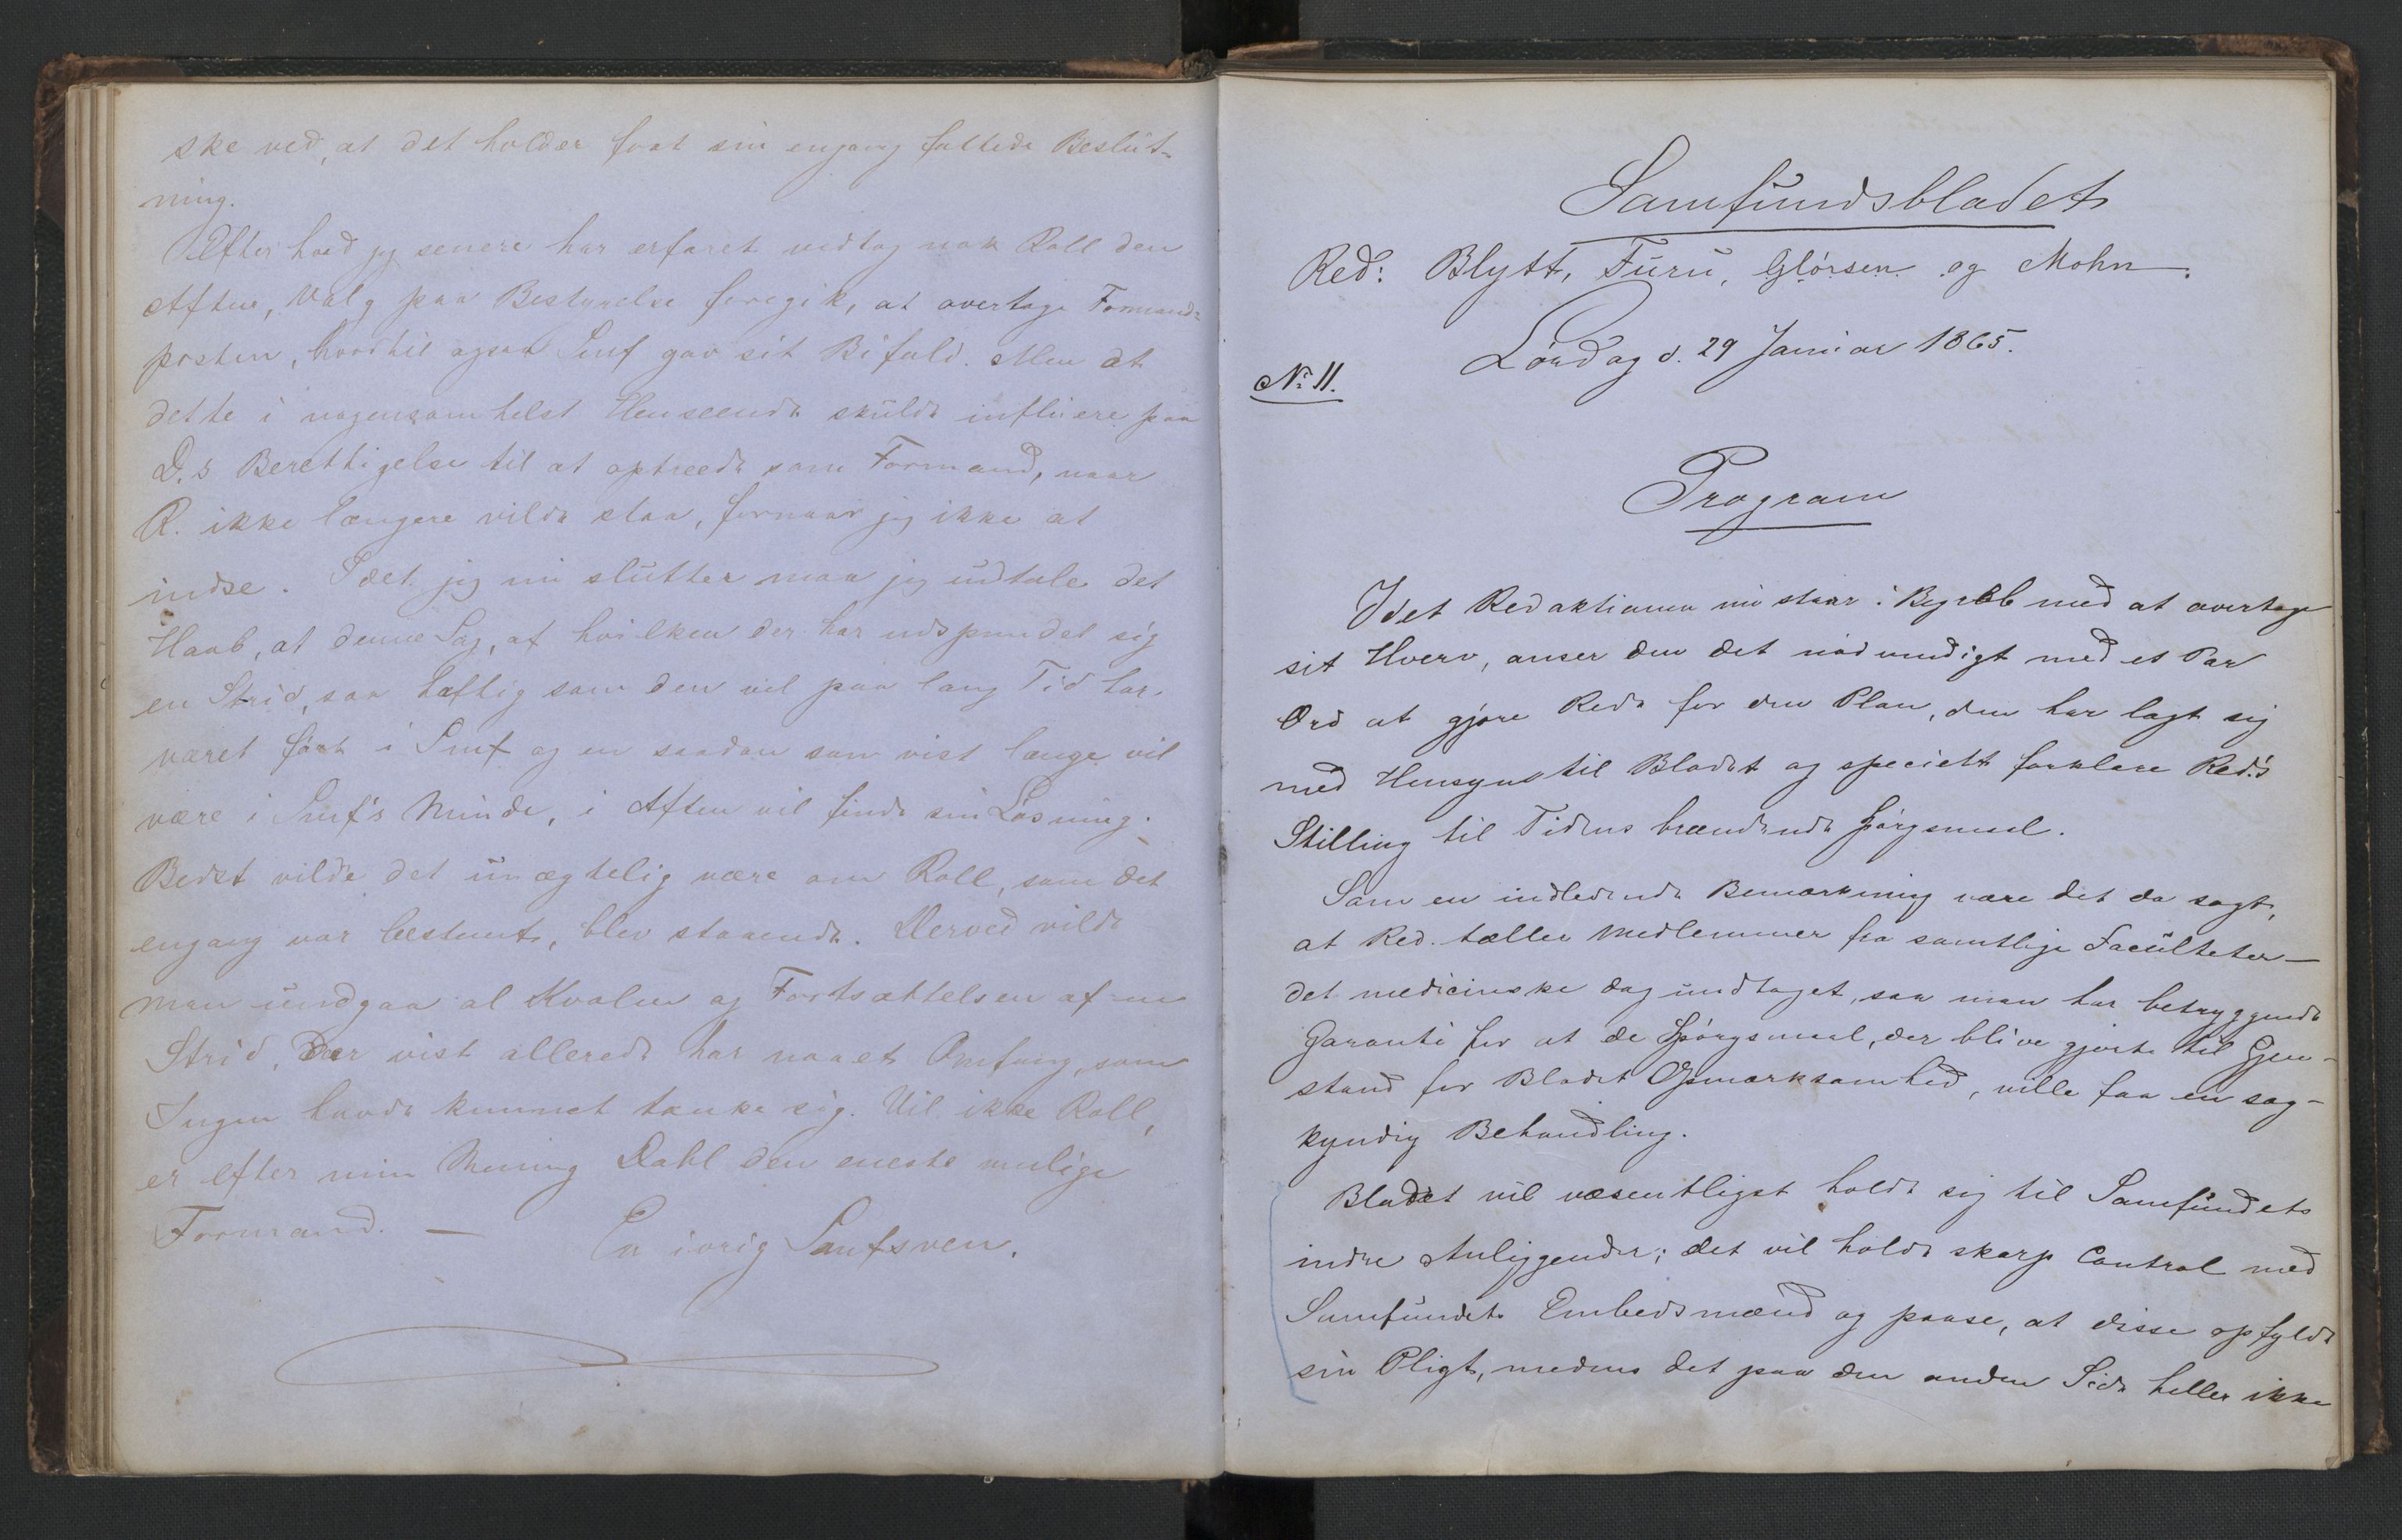 ske ved, at det holder fast sin engang fattede Beslut-
ning.
Efter hvad jeg senere har erfaret vedtog nok Roll den
Aften, Valg paa Bestyrelse foregik, at overtage Formands-
posten, hvortil ogsaa Smf gav sit Bifald. Men at
dette i nogensomhelst Henseende skulde influere paa
D.s Berettigelse til at optræde som Formand, naar
R. ikke længere vilde staa, formaar jeg ikke at
indse. Idet jeg nu slutter maa jeg udtale det
Haab, at denne Sag, af hvilken der har udspundet sig
en Strid, saa hæftig som den vel paa lang Tid har
været ført i Smf og en saadan som vist længe vil
være i Smf's Minde, i Aften vil finde sin Løsning.
Bedst vilde det unægtelig være om Roll, som det
engang var bestemt, blev staaende. Derved vilde
man undgaa al Kvalm og Fortsættelsen af en
Strid, der vist allerede har naaet Omfang, som
Ingen havde kunnet tænke sig. Vil ikke Roll,
er efter min Mening Dahl den eneste mulige
Formand. —
En ivrig Samfsven.
Samfundsbladet
Red: Blytt, Furu, Glørsen og Mohn.
Lørdag d. 29 Januar 1865.
No 11.
Program
Idet Redaktionen nu staar i Begreb med at overtage
sit Hverv, anser den det nødvendigt med et Par
Ord at gjøre Rede for den Plan, den har lagt sig
med Hensyn til Bladet og specielt forklare Red.'s
Stilling til Tidens brændende Spørgsmaal.
Som en indledende Bemærkning være det da sagt,
at Red. tæller Medlemmer fra samtlige Faculteter —
det medicinske dog undtaget, saa man har betryggende
Garanti for at de Spørgsmaal, der blive gjorte til Gjen-
stand for Bladet Opmærksomhed, ville faa en sag-
kyndig Behandling.
Bladet vil væsentligst holde sig til Samfundets
indre Anliggender; det vil holde skarp Control med
Samfundets Embedsmænd og paase, at disse opfylde
sin Pligt, medens det paa den anden Side heller ikke